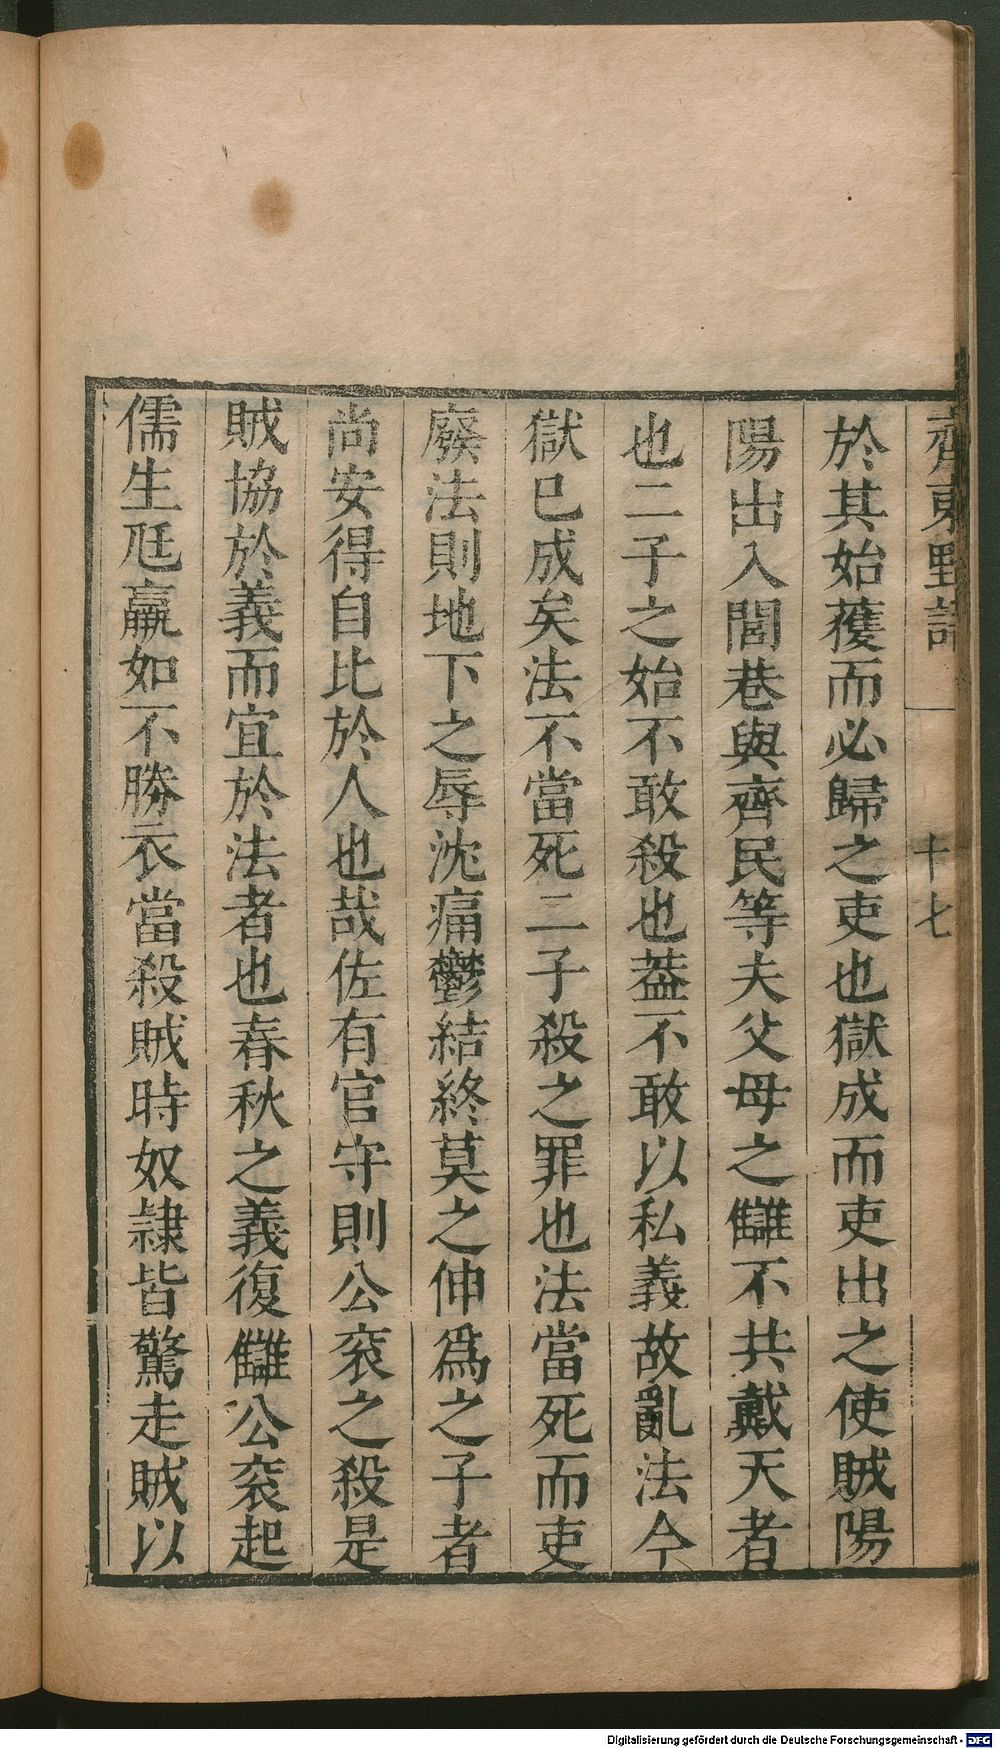 齊東野語 十七
於其始䕶而必歸之吏也獄成而吏出之使賊陽
陽出入閭巷與齊民等夫父母之讎不共戴天者
也二子之始不敢殺也葢不敢以私義故亂法今
獄已成矣法不當死二子殺之罪也法當死而吏
廢法則地下之辱沈痛鬱結終莫之伸爲之子者
尚安得自比於人也哉佐有官守則公衮之殺是
賊協於義而宜於法者也春秋之義復讎公衮起
儒生尫羸如不勝衣當殺賊時奴隷皆驚走賊以
Digitalisierung gefördert durch die Deutsche Forschungsgemeinschaft - DFG